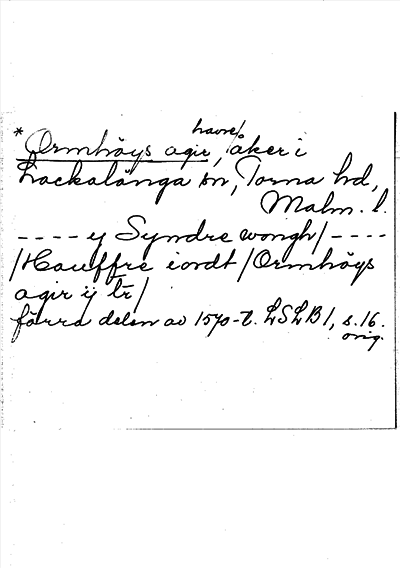 havre/
* Ormhöys agir, åker i
Lackalänga sn, Torna hd,
Malm. l.
---- y Syndre wongh/ ----
/Hauffre iordt/Ormhöys
agir ij tr/
förra delen av 1570-t. LSLB1, s.16.
orig.